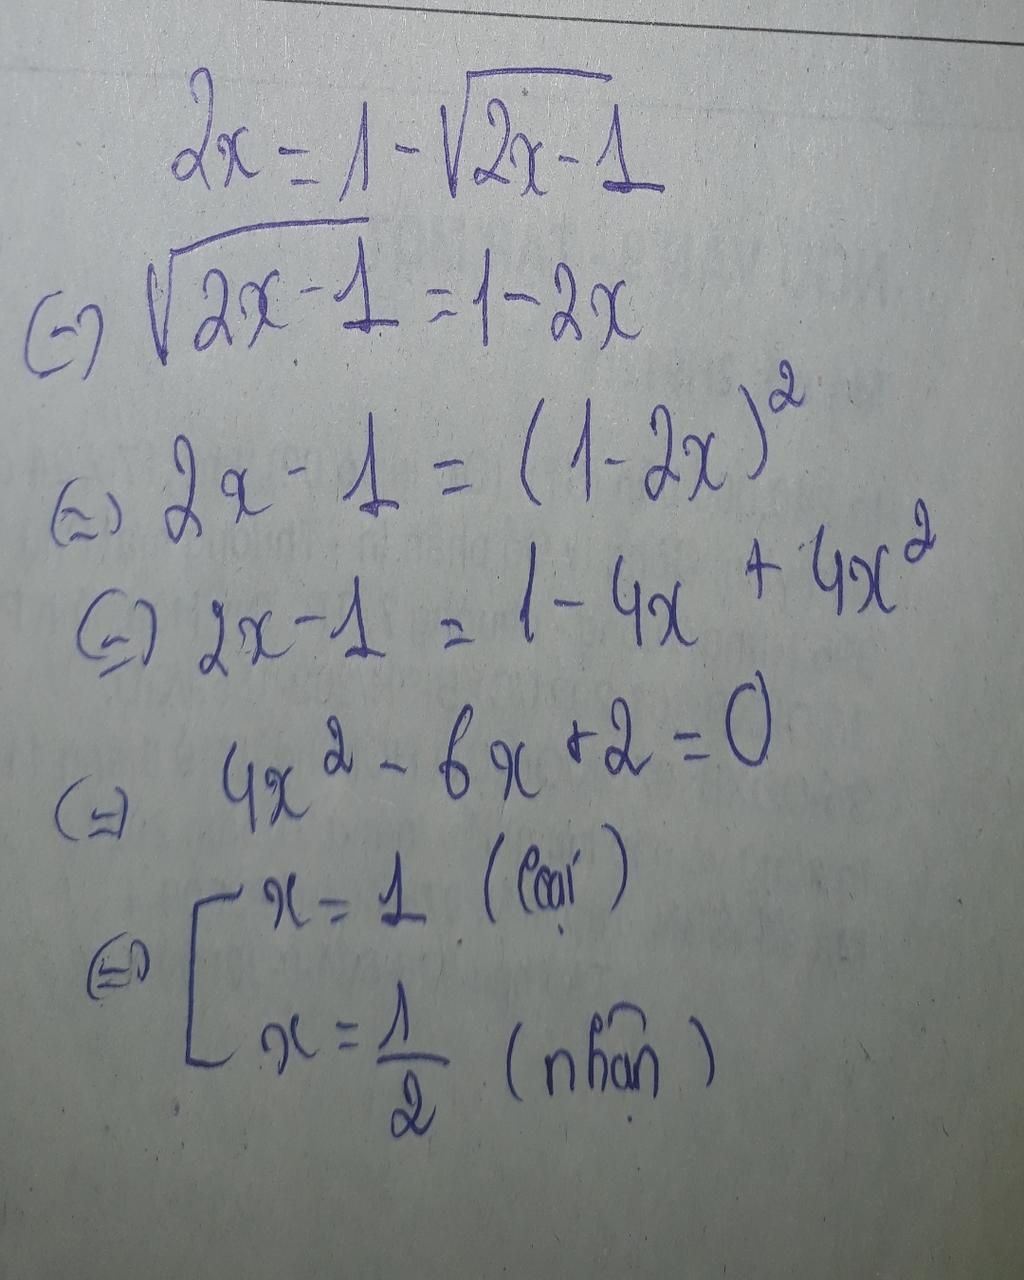 2x = 1 - √(2x - 1)
(=) √(2x - 1) = 1 - 2x
(=) 2x - 1 = (1 - 2x)²
(=) 2x - 1 = 1 - 4x + 4x²
(=) 4x² - 6x + 2 = 0
(=) [ x = 1 (loại)
x = 1/2 (nhận)